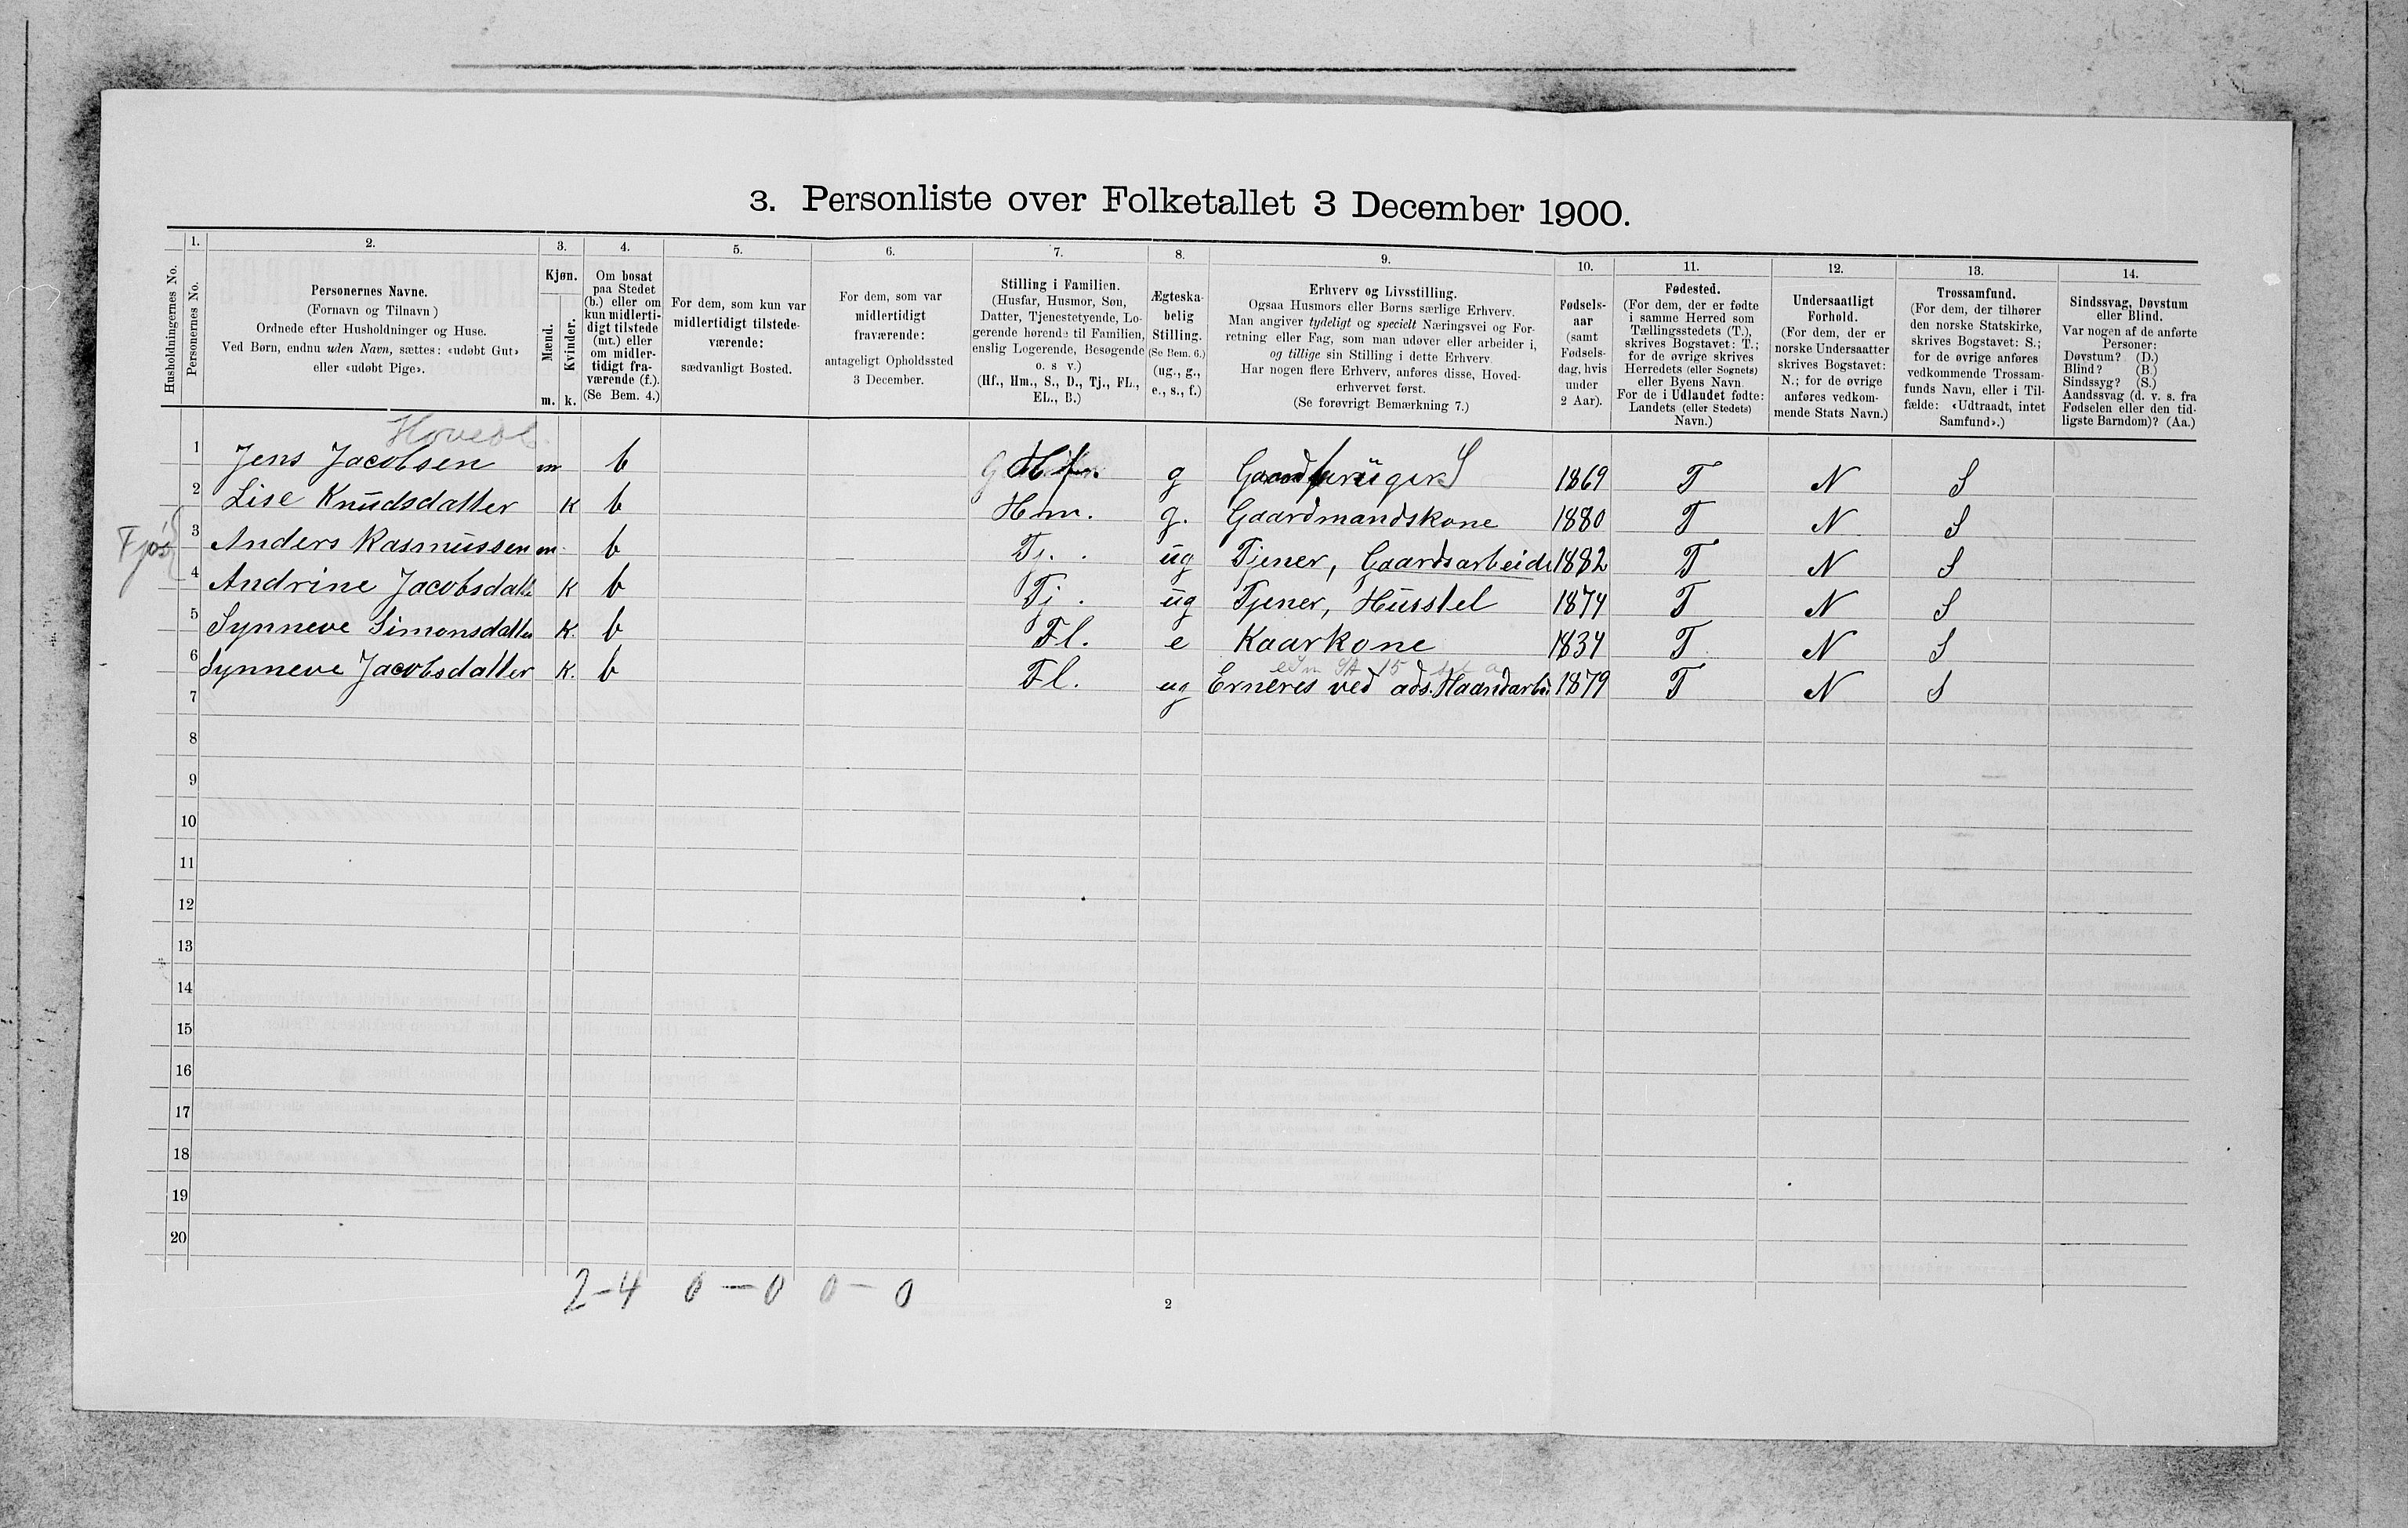 3. Personliste over Folketallet 3 December 1900.
1. 2. 3. 4. 5. 6. 7. 8. 9. 10. 11. 12. 13. 14.
Husholdningernes No.
Personernes No.
Personernes Navne.
(Fornavn og Tilnavn)
Ordnede efter Husholdninger og Huse.
Ved Børn, endnu uden Navn, sættes: «udøbt Gut»
eller «udøbt Pige».
Kjøn.
Mænd.
Kvinder.
m. k.
Om bosat
paa Stedet
(b.) eller om
kun midlerti-
digt tilstede
(mt.) eller
om midler-
tidigt fra-
værende (f.).
(Se Bem. 4.)
For dem, som kun var
midlertidigt tilstede-
værende:
sædvanligt Bosted.
For dem, som var
midlertidigt
fraværende:
antageligt Opholdssted
3 December.
Stilling i Familien.
(Husfar, Husmor, Søn,
Datter, Tjenestetyende, Lo-
gerende hørende til Familien,
enslig Logerende, Besøgende
o. s v.)
(Hf., Hm., S., D., Tj., FL.,
EL., B.)
Ægteska-
belig
Stilling.
(Se Bem. 6.)
(ug., g.,
e., s., f.)
Erhverv og Livsstilling.
Ogsaa Husmors eller Børns særlige Erhverv.
Man angiver tydeligt og specielt Næringsvei og For-
retning eller Fag, som man udøver eller arbeider i,
og tillige sin Stilling i dette Erhverv.
Har nogen flere Erhverv, anføres disse, Hoved-
erhvervet først.
(Se forøvrigt Bemærkning 7.)
Fødsels-
aar
(samt
Fødsels-
dag, hvis
under
2 Aar).
Fødested.
(For dem, der er fødte
i samme Herred som
Tællingsstedets (T.),
skrives Bogstavet: T.;
for de øvrige skrives
Herredets (eller Sognets)
eller Byens Navn.
For de i Udlandet fødte:
Landets (eller Stedets)
Navn.)
Undersaatligt
Forhold.
(For dem, der er
norske Undersaatter
skrives Bogstavet:
N.; for de øvrige
anføres vedkom-
mende Stats Navn.)
Trossamfund.
(For dem, der tilhører
den norske Statskirke,
skrives Bogstavet: S.;
for de øvrige anføres
vedkommende Trossam-
funds Navn, eller i Til-
fælde: «Udtraadt, intet
Samfund».)
Sindssvag, Døvstum
eller Blind.
Var nogen af de anførte
Personer:
Døvstum? (D.)
Blind? (B.)
Sindssyg? (S.)
Aandssvag (d. v. s. fra
Fødselen eller den tid-
ligste Barndom)? (Aa.)
1 Jens Jacobsen m b Hf. g Gaardbruger S 1869 T N S
2 Lise Knudsdatter K b Hm. g. Gaardmandskone 1880 T N S
Fjøs
3 Anders Rasmussen m. b Tj. ug Tjener, Gaardsarbeide 1882 T N S
4 Andrine Jacobsdatt K b Tj. ug Tjener, Husstel 1874 T N S
5 Synneve Simonsdatter K. b Fl. e Kaarkone 1834 T N S
6 Synneve Jacobsdatter K. b Fl. ug Erneres ved ads. Haandarbei 1879 T N S
7
8
9
10
11
12
13
14
15
16
17
18
19
20
2-4 0-0 0-0
2